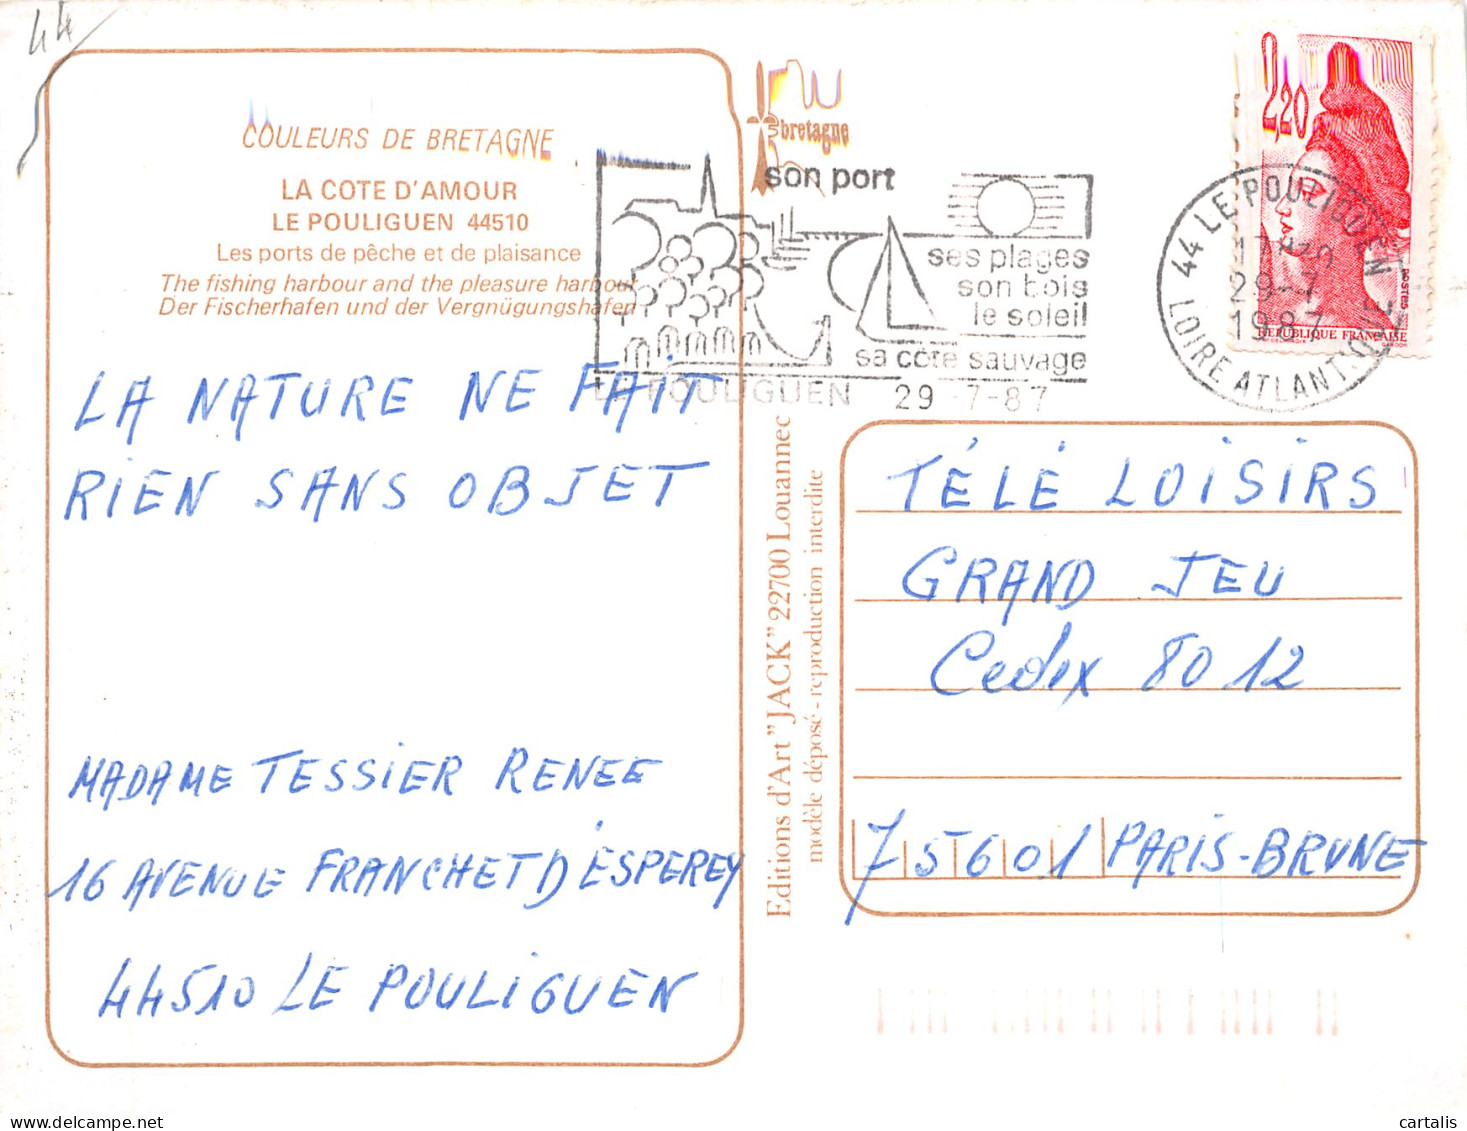 44
COULEURS DE BRETAGNE
LA COTE D'AMOUR
LE POULIGUEN 44510
Les ports de pêche et de plaisance
The fishing harbour and the pleasure harbour
Der Fischerhafen und der Vergnügungshafen
LA NATURE NE FAIT
RIEN SANS OBJET
MADAME TESSIER RENEE
16 AVENUE FRANCHET D ÉSPEREY
44510 LE POULIGUEN
bretagne
son port
ses plages
son bois
le soleil
sa côte sauvage
LE POULIGUEN 29 -7-87
Editions d'Art "JACK" 22700 Louannec
modèle déposé - reproduction interdite
2,20
REPUBLIQUE FRANÇAISE
POSTES
44 LE POULIGUEN
29-7
1987
LOIRE ATLANTIQUE
TÉLÉ LOISIRS
GRAND JEU
Cedex 8012
75601 PARIS-BRUNE
cartalis